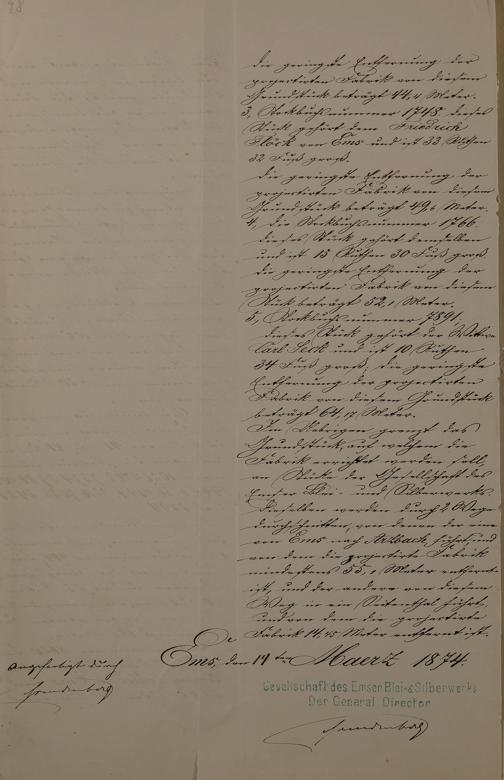 die geringste Entfernung der
projectirten Fabrik von diesem
Grundstück beträgt 44,4 Meter.
3, Stockbuchsnummer 1748. dieses
Stück gehört dem Friedrich
Flöck von Ems und ist 33 Ruthen
32 Fuß groß.
die geringste Entfernung der
projectirten Fabrik von diesem
Grundstück beträgt 49,6 Meter.
4, die Stockbuchsnummer 1766.
dieses Stück gehört demselben
und ist 15 Ruthen 30 Fuß groß.
die geringste Entfernung der
projectirten Fabrik von diesem
Stück beträgt 52,1 Meter.
5, Stockbuchsnummer 7891,
dieses Stück gehört der Wittwe
Carl Seck und ist 10 Ruthen
34 Fuß groß; die geringste
Entfernung der projectirten
Fabrik von diesem Grundstück
beträgt 64,17 Meter.
Im Uebrigen grenzt das
Grundstück, auf welchem die
Fabrik errichtet werden soll,
an Stücke der Gesellschaft des
Emser Blei- und Silberwerks.
Dieselben werden durch 2 Wege
durchschnitten, von denen der eine
von Ems nach Arzbach führt und
von dem die projectirte Fabrik
mindestens 55,1 Meter entfernt
ist, und der andere von diesem
Weg in ein Seitenthal führt,
und von dem die projectirte
Fabrik 14,45 Meter entfernt ist.
Ems, den 19ten Maerz 1874.
angefertigt durch
Gesellschaft des Emser Blei-& Silberwerks
Der General Director